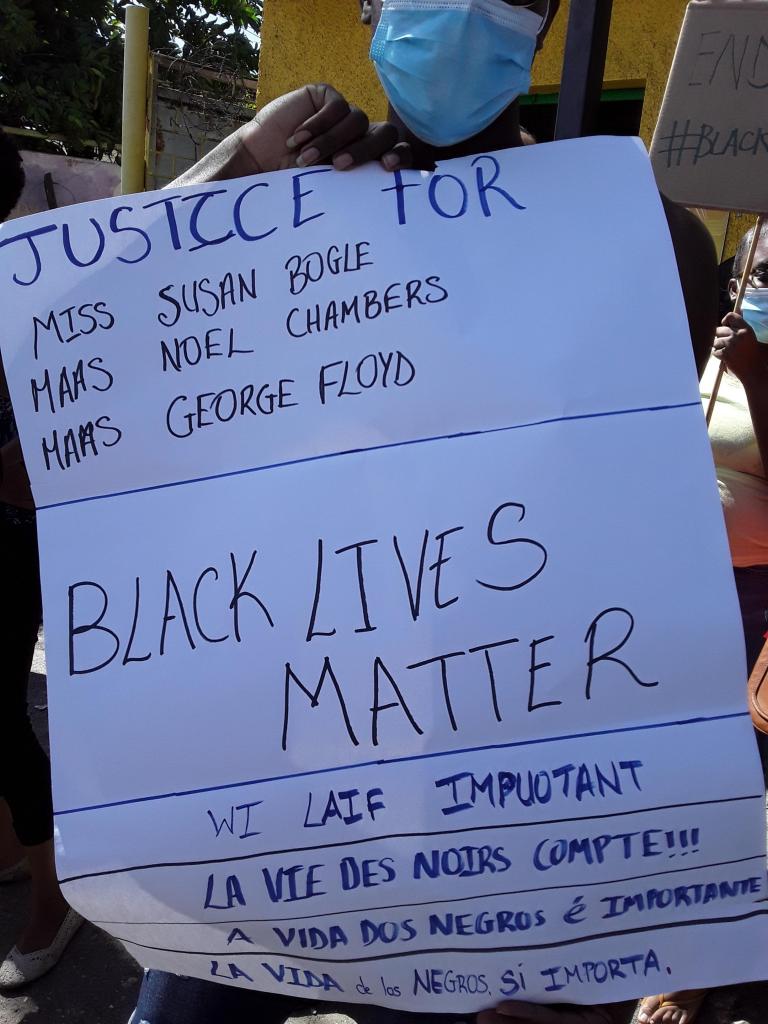 JUSTICE FOR
MISS SUSAN BOGLE
MAAS NOEL CHAMBERS
MAAS GEORGE FLOYD
BLACK LIVES
MATTER
WI LAIF IMPUOTANT
LA VIE DES NOIRS COMPTE!!!
A VIDA DOS NEGROS é IMPORTANTE
LA VIDA de los NEGROS. Sí IMPORTA.
END
#BLACK